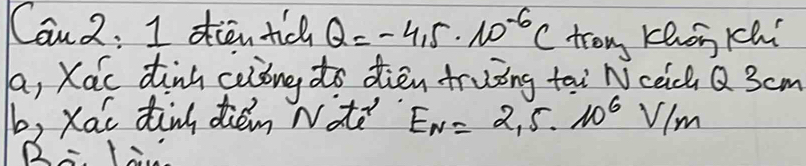 Câu 2: 1 điện tích Q = -4,5 . 10⁻⁶ C trong không khí
a, Xác định cường độ điện trường tại N cách Q 3cm
b, Xác định điểm N để E_N = 2,5 . 10⁶ V/m